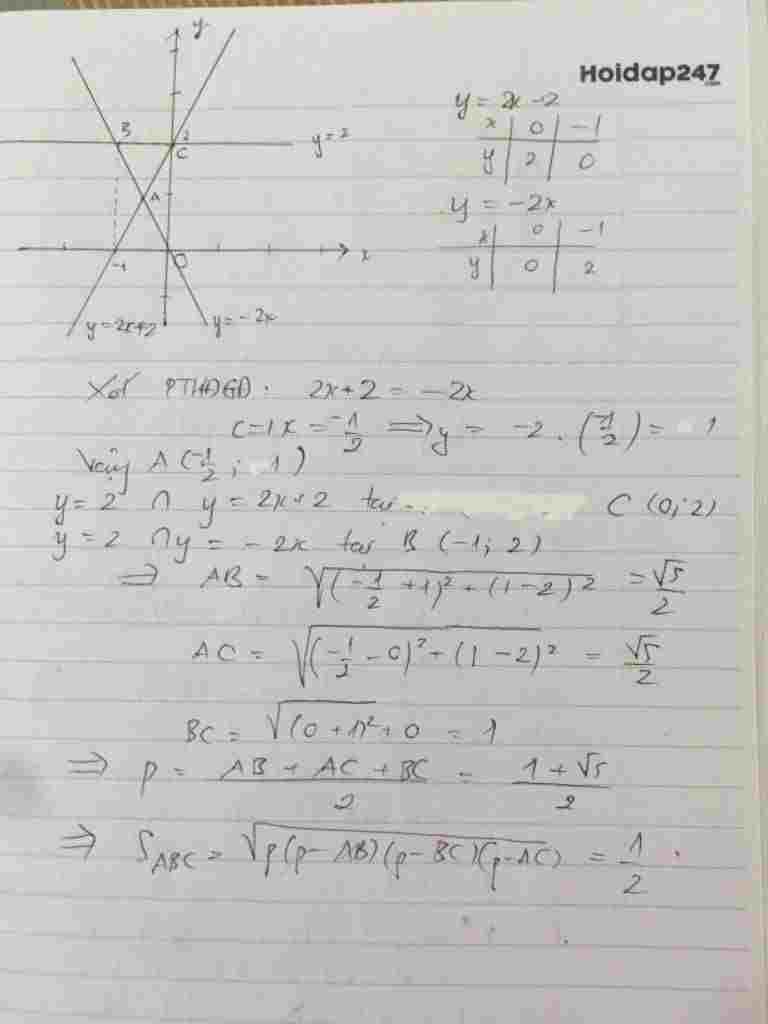 Hoidap247
y
B
2
C
y = 2
A
-1
O
x
y = 2x+2
y = -2x
y = 2x -2
x | 0 | -1
y | 2 | 0
y = -2x
x | 0 | -1
y | 0 | 2
Xét PTHĐGĐ: 2x+2 = -2x
<=> x = -1/2 => y = -2 . (-1/2) = 1
Vậy A (-1/2 ; 1)
y = 2 ∩ y = 2x+2 tại C (0; 2)
y = 2 ∩ y = -2x tại B (-1; 2)
=> AB = √((-1/2 +1)² + (1-2)²) = √5/2
AC = √((-1/2 - 0)² + (1-2)²) = √5/2
BC = √((0+1)² + 0) = 1
=> p = (AB + AC + BC)/2 = (1+√5)/2
=> S_ABC = √(p(p-AB)(p-BC)(p-AC)) = 1/2 .